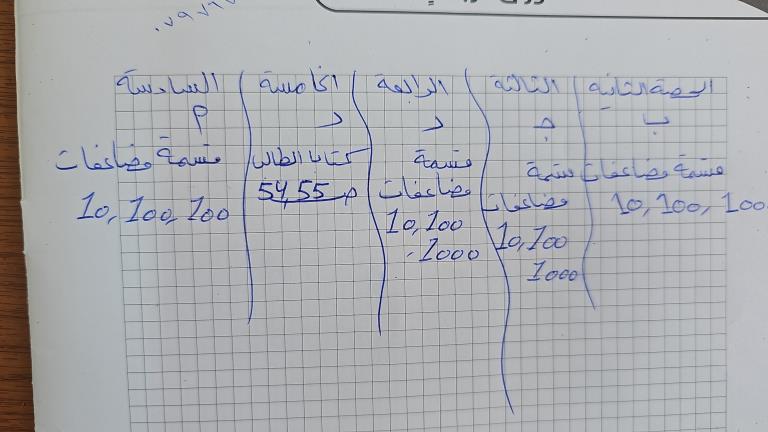 الحصة الثانية
ب
قسمة مضاعفات
10, 100, 100
الثالثة
ج
قسمة
مضاعفات
10, 100
1000
الرابعة
د
قسمة
مضاعفات
10, 100
1000
الخامسة
د
كتاب الطالب
ص 54, 55
السادسة
م
قسمة مضاعفات
10, 100, 100